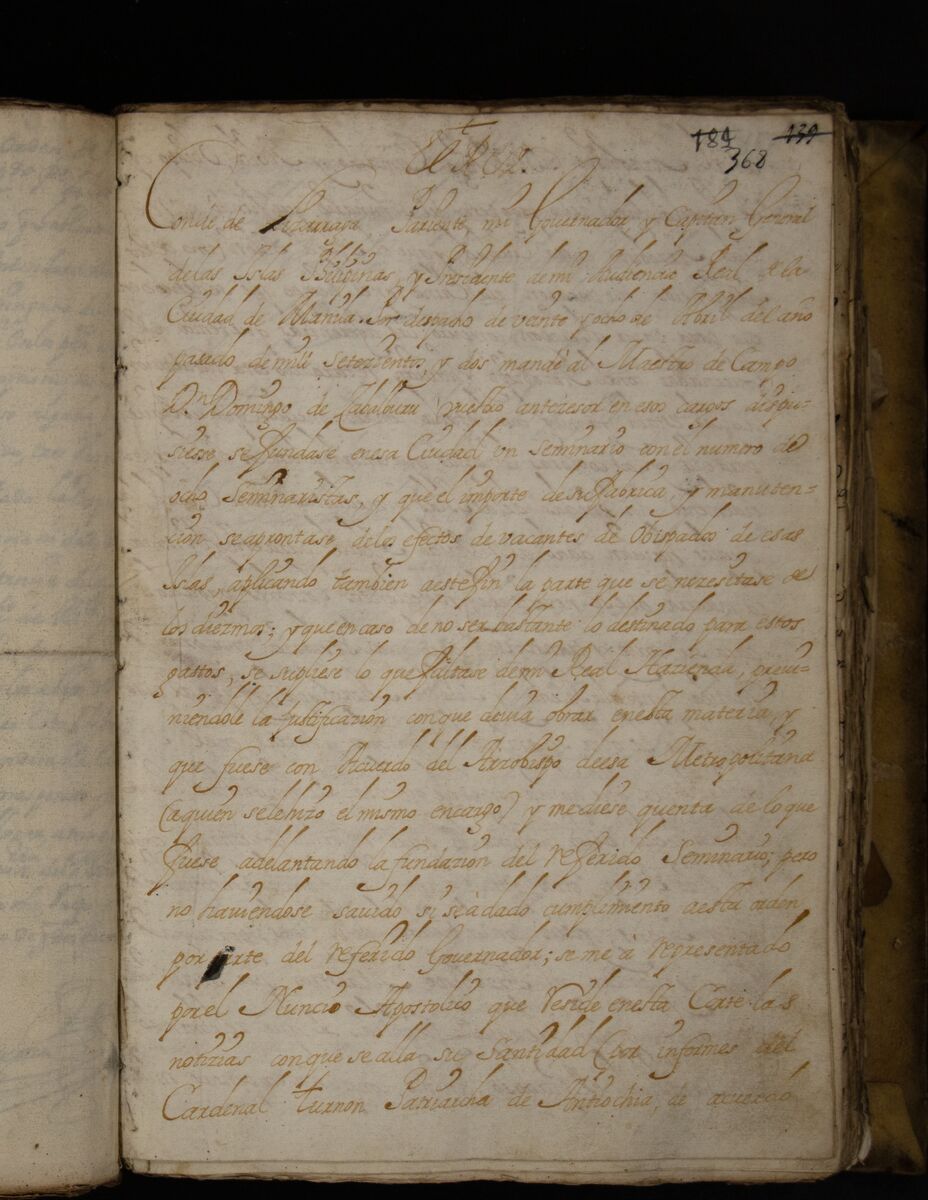 184 139
368
El Rey.
Conde de Lizarraga Pariente, mi Governador y Capitan General
de las Islas Philipinas, y Presidente de mi Audiencia Real de la
Ciudad de Manila. Por despacho de veinte y ocho de Abril del año
pasado de mill setezientos, y dos mandè al Maestro de Campo
D.n Domingo de Zabalburu vuestro antezesor en esos cargos dispu-
siesse se fundase en esa Ciudad un Seminario con el numero de
ocho Seminaristas, y que el importe de su fabrica, y manuten-
cion, se aprontase de los efectos de vacantes de Obispados de esas
Islas, aplicando tambien a este fin la parte que se nezesitase de
los diezmos; y que en caso de no ser bastante lo destinado para estos
gastos, se supliese lo que faltase de mi Real Hazienda, previ-
niendole la justificazion con que devia obrar en esta materia, y
que fuese con Acuerdo del Arzobispo de esa Metropolitana
(a quien se le hizo el mismo encargo) y me diese quenta de lo que
fuese adelantando la fundazion del referido Seminario; pero
no haviendose savido si se à dado cumplimiento a esta orden
por parte del referido Governador; se me à representado
por el Nuncio Apostolico que reside en esta Corte las
notizias con que se alla su Santidad (por informes del
Cardenal Turnon Patriarcha de Antiochia, de acuerdo